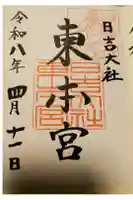 日吉大社
東本宮
令和八年
四月十一日